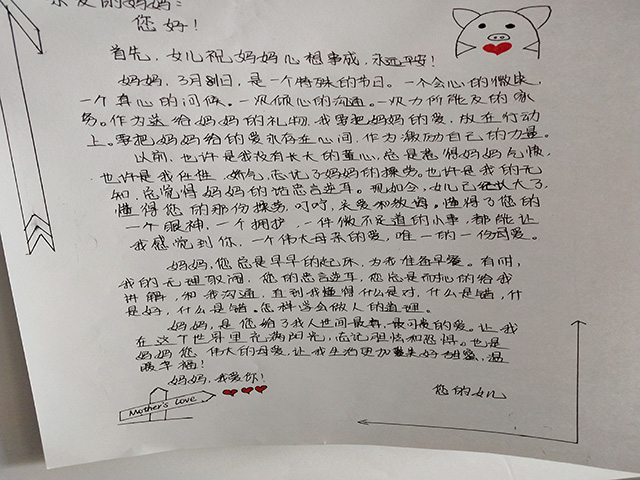 亲爱的妈妈:
您好!
首先,女儿祝妈妈心想事成,永远平安!
妈妈,3月8日,是一个特殊的节日。一个会心的微笑,
一个真心的问候。一次倾心的沟通。一次力所能及的家
务。作为送给妈妈的礼物,我要把妈妈的爱,放在行动
上。要把妈妈给的爱永存在心间,作为激励自己的力量。
以前,也许是我没有长大的童心,总是惹得妈妈气愤,
也许是我任性、娇气,忘记了妈妈的操劳,也许是我的无
知,总觉得妈妈的话忠言逆耳。现如今,女儿已经长大了,
懂得您的那份操劳,叮咛,关爱和教诲。懂得了您的
一个眼神,一个拥护,一件微不足道的小事,都能让
我感觉到你,一个伟大母亲的爱,唯一的一份母爱。
妈妈,您总是早早的起床,为我准备早餐。有时,
我的无理取闹,您的忠言逆耳,您总是耐心的给我
讲解,和我沟通,直到我懂得什么是对,什么是错,什
是好,什么是错。怎样学会做人的道理。
妈妈,是您给了我人世间最真、最可贵的爱。让我
在这个世界里充满阳光,忘记胆怯和恐惧。也是
妈妈您 伟大的母爱,让我生活更加美好甜蜜,温
暖幸福!
妈妈,我爱你!
您的女儿
Mother's Love